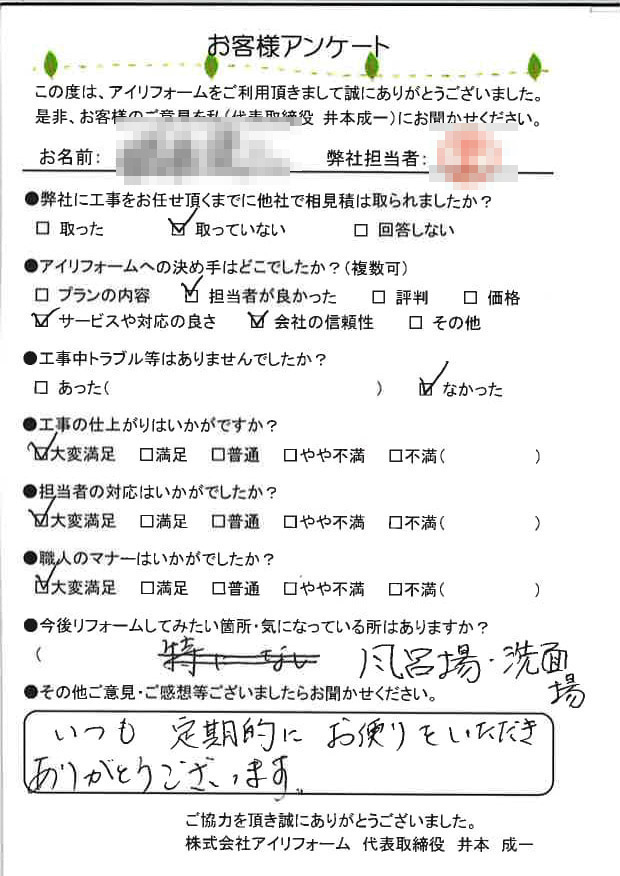 お客様アンケート
この度は、アイリフォームをご利用頂きまして誠にありがとうございました。
是非、お客様のご意見を私(代表取締役 井本成一)にお聞かせください。
お名前: 弊社担当者:
●弊社に工事をお任せ頂くまでに他社で相見積は取られましたか？
□ 取った ☑ 取っていない □ 回答しない
●アイリフォームへの決め手はどこでしたか？(複数可)
□ プランの内容 ☑ 担当者が良かった □ 評判 □ 価格
☑ サービスや対応の良さ ☑ 会社の信頼性 □ その他
●工事中トラブル等はありませんでしたか？
□ あった( ) ☑ なかった
●工事の仕上がりはいかがですか？
☑大変満足 □満足 □普通 □やや不満 □不満( )
●担当者の対応はいかがでしたか？
☑大変満足 □満足 □普通 □やや不満 □不満( )
●職人のマナーはいかがでしたか？
☑大変満足 □満足 □普通 □やや不満 □不満( )
●今後リフォームしてみたい箇所・気になっている所はありますか？
( 特になし 風呂場・洗面
場
●その他ご意見・ご感想等ございましたらお聞かせください。
いつも 定期的に お便りをいただき
ありがとうございます。
ご協力を頂き誠にありがとうございました。
株式会社アイリフォーム 代表取締役 井本 成一